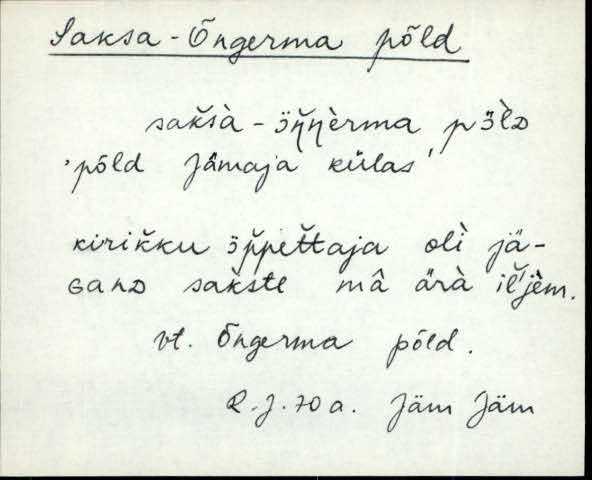 Saksa-Õngerma põld
sak̆sà - ɜ̈ŋ̆ŋèrma pɜ̈̀lD
'põld Jämaja külas'
kirik̆ku ɜ̈p̆pet̆taja olì jä-
GanD sak̆ste mâ ärà il̆'jèm.
vt. Õngerma põld.
R.J. 70 a. Jäm Jäm